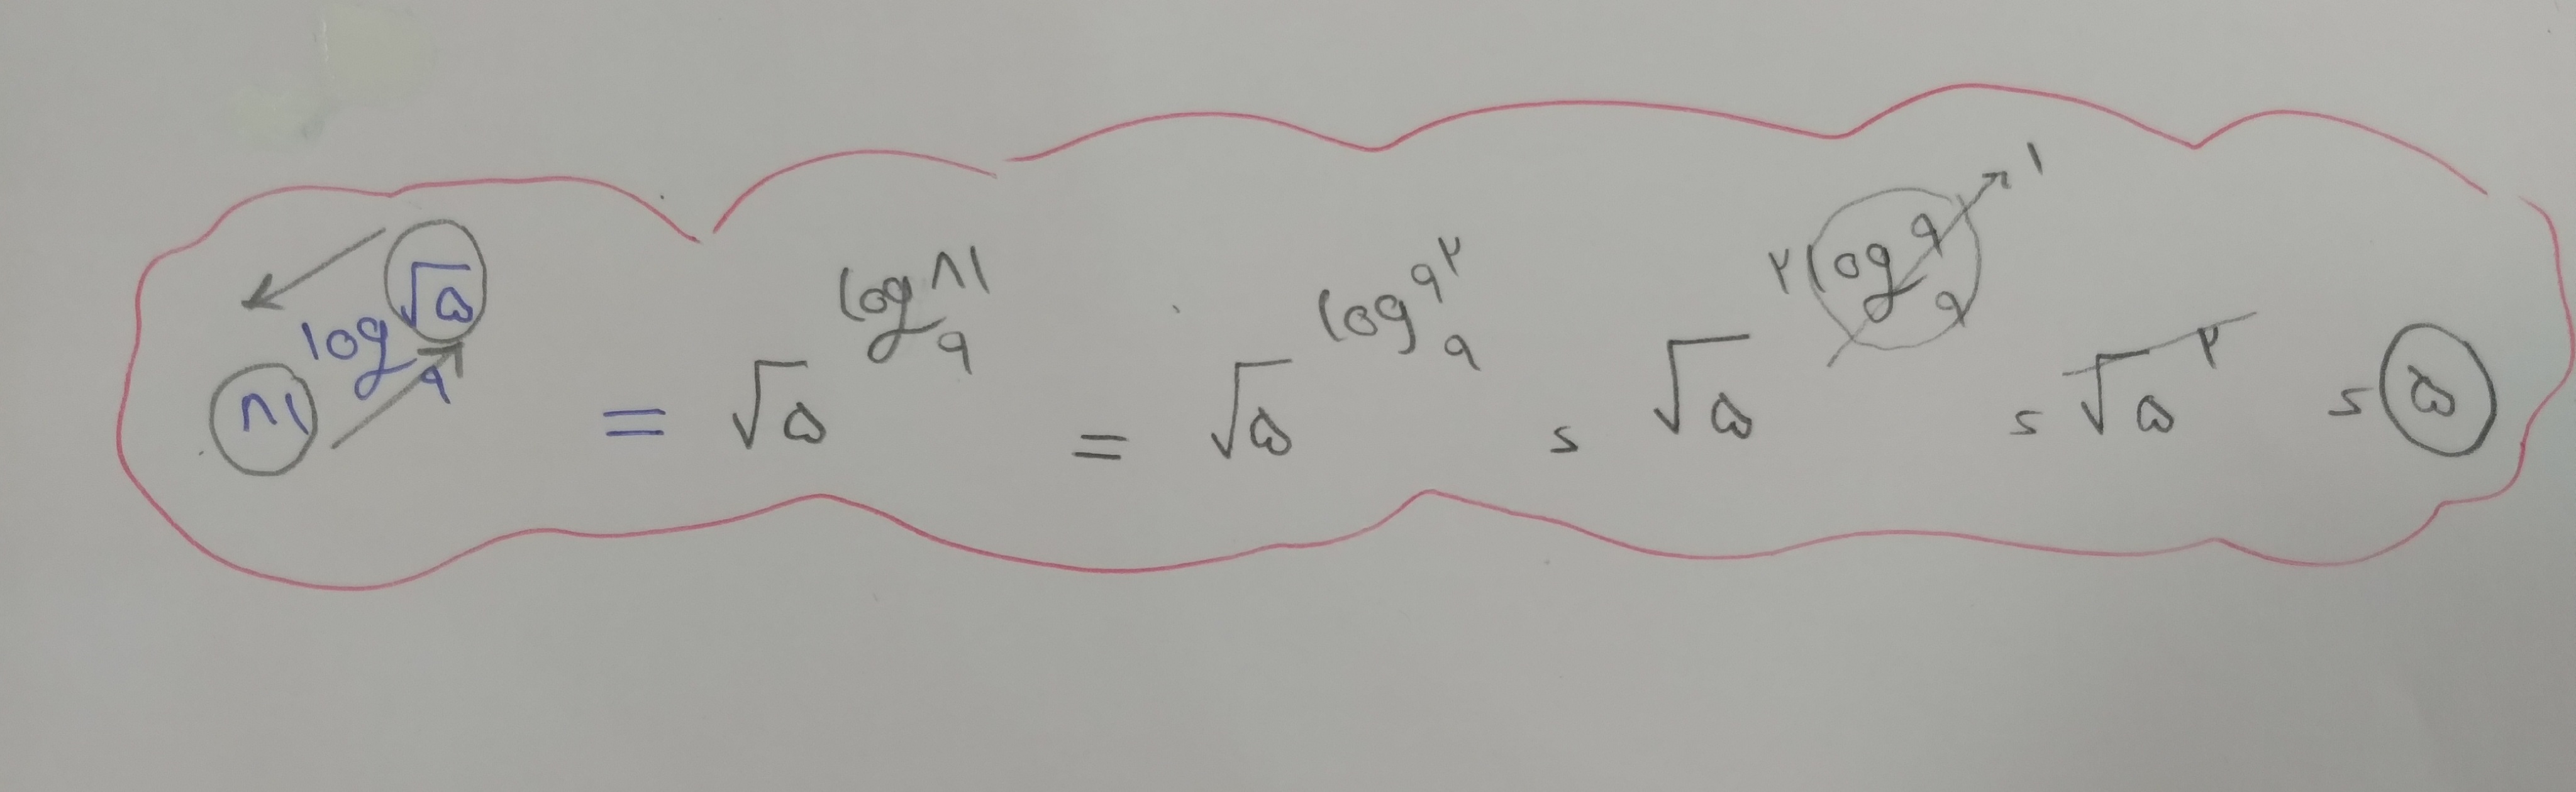 ۸۱^(log_۹ √۵) = √۵^(log_۹ ۸۱) = √۵^(log_۹ ۹^۲) = √۵^(۲ log_۹ ۹ → ۱) = √۵^۲ = ۵